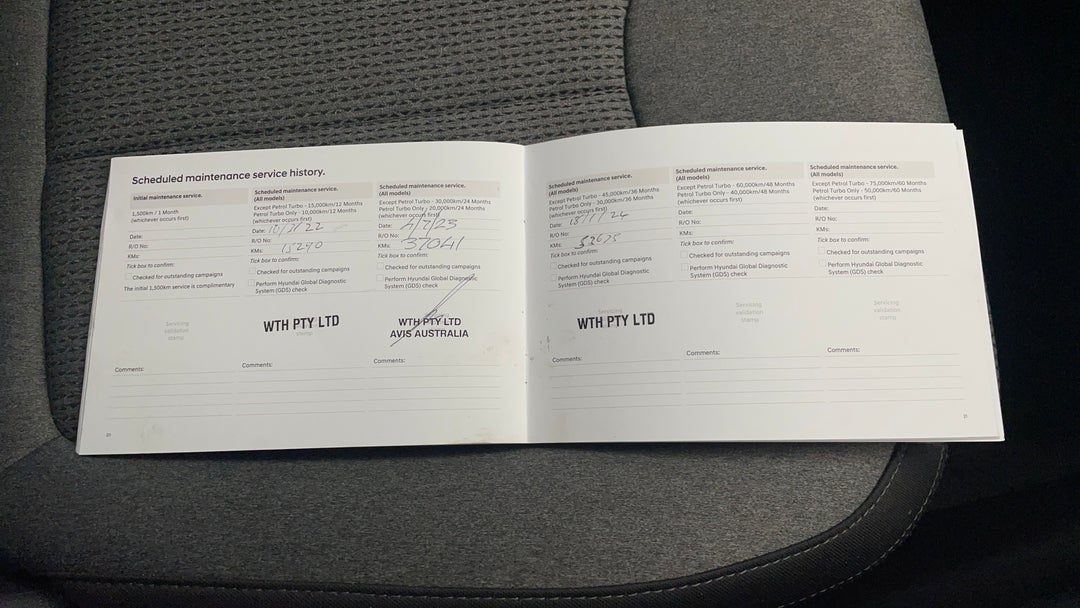 Scheduled maintenance service history.
Initial maintenance service.
1,500km / 1 Month
(whichever occurs first)
Date:
R/O No:
KMs:
Tick box to confirm:
Checked for outstanding campaigns
The initial 1,500km service is complimentary
Servicing
validation
stamp
Comments:
Scheduled maintenance service.
(All models)
Except Petrol Turbo - 15,000km/12 Months
Petrol Turbo Only - 10,000km/12 Months
(whichever occurs first)
Date:
R/O No:
KMs: 15290
Tick box to confirm:
Checked for outstanding campaigns
Perform Hyundai Global Diagnostic
System (GDS) check
WTH PTY LTD
stamp
Comments:
Scheduled maintenance service.
(All models)
Except Petrol Turbo - 30,000km/24 Months
Petrol Turbo Only - 20,000km/24 Months
(whichever occurs first)
Date: 4/2/23
R/O No:
KMs: 37041
Tick box to confirm:
Checked for outstanding campaigns
Perform Hyundai Global Diagnostic
System (GDS) check
WTH PTY LTD
AVIS AUSTRALIA
Comments:
Scheduled maintenance service.
(All models)
Except Petrol Turbo - 45,000km/36 Months
Petrol Turbo Only - 30,000km/36 Months
(whichever occurs first)
Date: 18/1/24
R/O No:
KMs: 53675
Tick box to confirm:
Checked for outstanding campaigns
Perform Hyundai Global Diagnostic
System (GDS) check
Servicing
WTH PTY LTD
Comments:
Scheduled maintenance service.
(All models)
Except Petrol Turbo - 60,000km/48 Months
Petrol Turbo Only - 40,000km/48 Months
(whichever occurs first)
Date:
R/O No:
KMs:
Tick box to confirm:
Checked for outstanding campaigns
Perform Hyundai Global Diagnostic
System (GDS) check
Servicing
validation
stamp
Comments:
Scheduled maintenance service.
(All models)
Except Petrol Turbo - 75,000km/60 Months
Petrol Turbo Only - 50,000km/60 Months
(whichever occurs first)
Date:
R/O No:
KMs:
Tick box to confirm:
Checked for outstanding campaigns
Perform Hyundai Global Diagnostic
System (GDS) check
Servicing
validation
stamp
Comments:
20
21